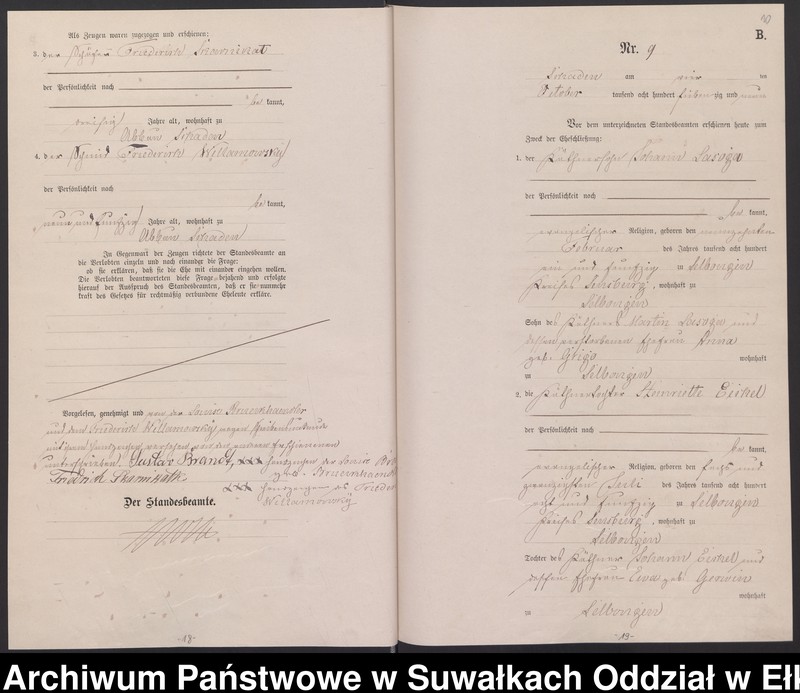 Als Zeugen waren zugezogen und erschienen:
3. der Schäfer Friedrich Skarnikat
der Persönlichkeit nach
be kannt,
dreißig Jahre alt, wohnhaft zu
Abbau Sdraden
4. der Schmied Friedrich Willamowsky
der Persönlichkeit nach
be kannt,
neun und fünfzig Jahre alt, wohnhaft zu
Abbau Sdraden
In Gegenwart der Zeugen richtete der Standesbeamte an
die Verlobten einzeln und nach einander die Frage:
ob sie erklären, daß sie die Ehe mit einander eingehen wollen.
Die Verlobten beantworteten diese Frage bejahend und erfolgte
hierauf der Ausspruch des Standesbeamten, daß er sie nunmehr
kraft des Gesetzes für rechtmäßig verbundene Eheleute erkläre.
Vorgelesen, genehmigt und von der Louise
und dem Friedrich Willamowsky wegen
mit ihren Handzeichen versehen von den anderen Erschienenen
unterschrieben. Gustav Brandt, xxx Handzeichen der Louise
geb.
Fridrich Skarnikath
xxx Handzeichen des Friedrich
Willamowsky
Der Standesbeamte.
-18-
B.
Nr. 9
Sdraden am vier ten
October tausend acht hundert siebenzig und neun
Vor dem unterzeichneten Standesbeamten erschienen heute zum
Zweck der Eheschließung:
1. der Käthnersohn Johann Sasoga
der Persönlichkeit nach
be kannt,
evangelischer Religion, geboren den neunzehnten
Februar des Jahres tausend acht hundert
ein und fünfzig zu Selbongen
Kreises Sensburg, wohnhaft zu
Selbongen
Sohn des Käthners Martin Sasoga und
dessen verstorbenen Ehefrau Anna
geb. Griga wohnhaft
zu Selbongen
2. die Käthnertochter Henriette Eickel
der Persönlichkeit nach
be kannt,
evangelischer Religion, geboren den sechs und
zwanzigsten Juli des Jahres tausend acht hundert
acht und fünfzig zu Selbongen
Kreises Sensburg, wohnhaft zu
Selbongen
Tochter des Käthner Johann Eickel und
dessen Ehefrau Eva geb.
wohnhaft
zu Selbongen
-19-
Archiwum Państwowe w Suwałkach Oddział w Ełk